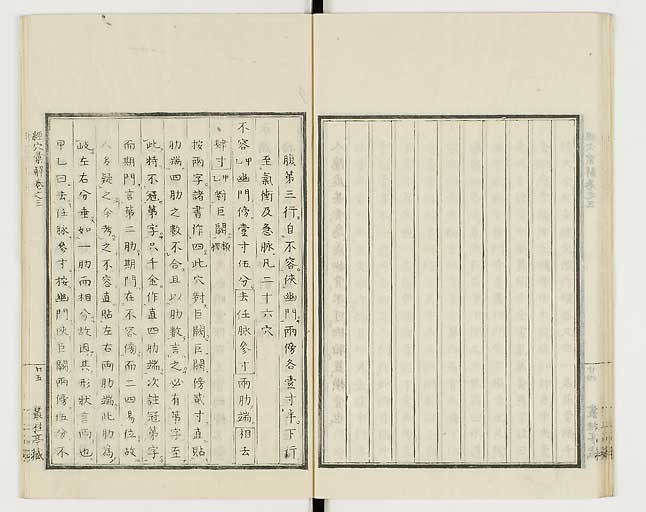 腹第三行自不容俠幽門兩傍各壹寸半下行
至氣衝及急脉凡二十六穴
不容甲乙幽門傍壹寸伍分去任脉參寸兩肋端相去
肆寸甲乙對巨闕
按兩字諸書作四此穴對巨闕巨闕傍貳寸直貼
肋端四肋之數不合且以肋數言之必有第字至
此特不冠第字只千金作直四肋端次註冠第字
而期門言第二肋期門在不容傍而二四易位故
人多疑之余考之不容直貼左右兩肋端此肋為
岐左右分垂如一肋而相分故因其形狀言兩也
甲乙曰去任脉參寸按幽門俠巨闕兩傍伍分不
經穴彙解卷之三
廿五
叢桂亭藏